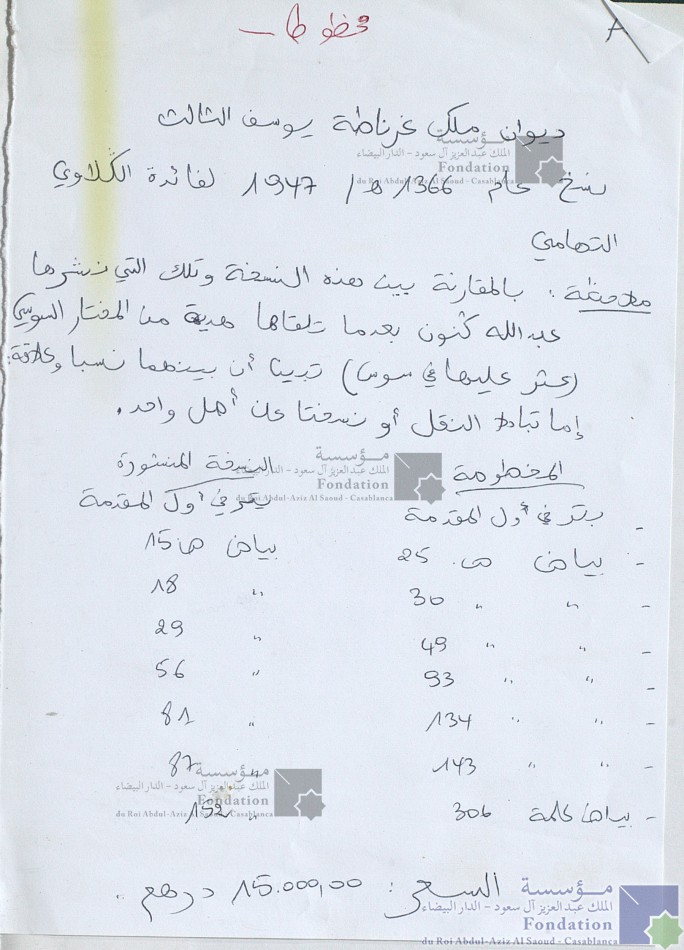 مخطوط
ديوان ملك غرناطة يوسف الثالث
نسخ عام 1366 ه / 1947 لفائدة الگلاوي
التهامي
ملاحظة: بالمقارنة بين هذه النسخة وتلك التي نشرها
عبد الله گنون بعدما تلقاها هدية من المختار السوسي
(عثر عليها في سوس) تبينا أن بينهما نسبا وعلاقة:
إما تبادلا النقل أو نسختا عن أصل واحد.
المخطوطة
النسخة المنشورة
- بتر في أول المقدمة
بتر في أول المقدمة
- بياض ص. 25
بياض ص 15
- " " 30
" 18
- " " 49
" 29
- " " 93
" 56
- " " 134
" 81
- " " 143
" 87
- بياض كلمة 306
" 152
السعر: 15.000,00 درهم.
مؤسسة
الملك عبد العزيز آل سعود - الدار البيضاء
Fondation
du Roi Abdul-Aziz Al Saoud - Casablanca
مؤسسة
الملك عبد العزيز آل سعود - الدار البيضاء
Fondation
du Roi Abdul-Aziz Al Saoud - Casablanca
مؤسسة
الملك عبد العزيز آل سعود - الدار البيضاء
Fondation
du Roi Abdul-Aziz Al Saoud - Casablanca
مؤسسة
الملك عبد العزيز آل سعود - الدار البيضاء
Fondation
du Roi Abdul-Aziz Al Saoud - Casablanca